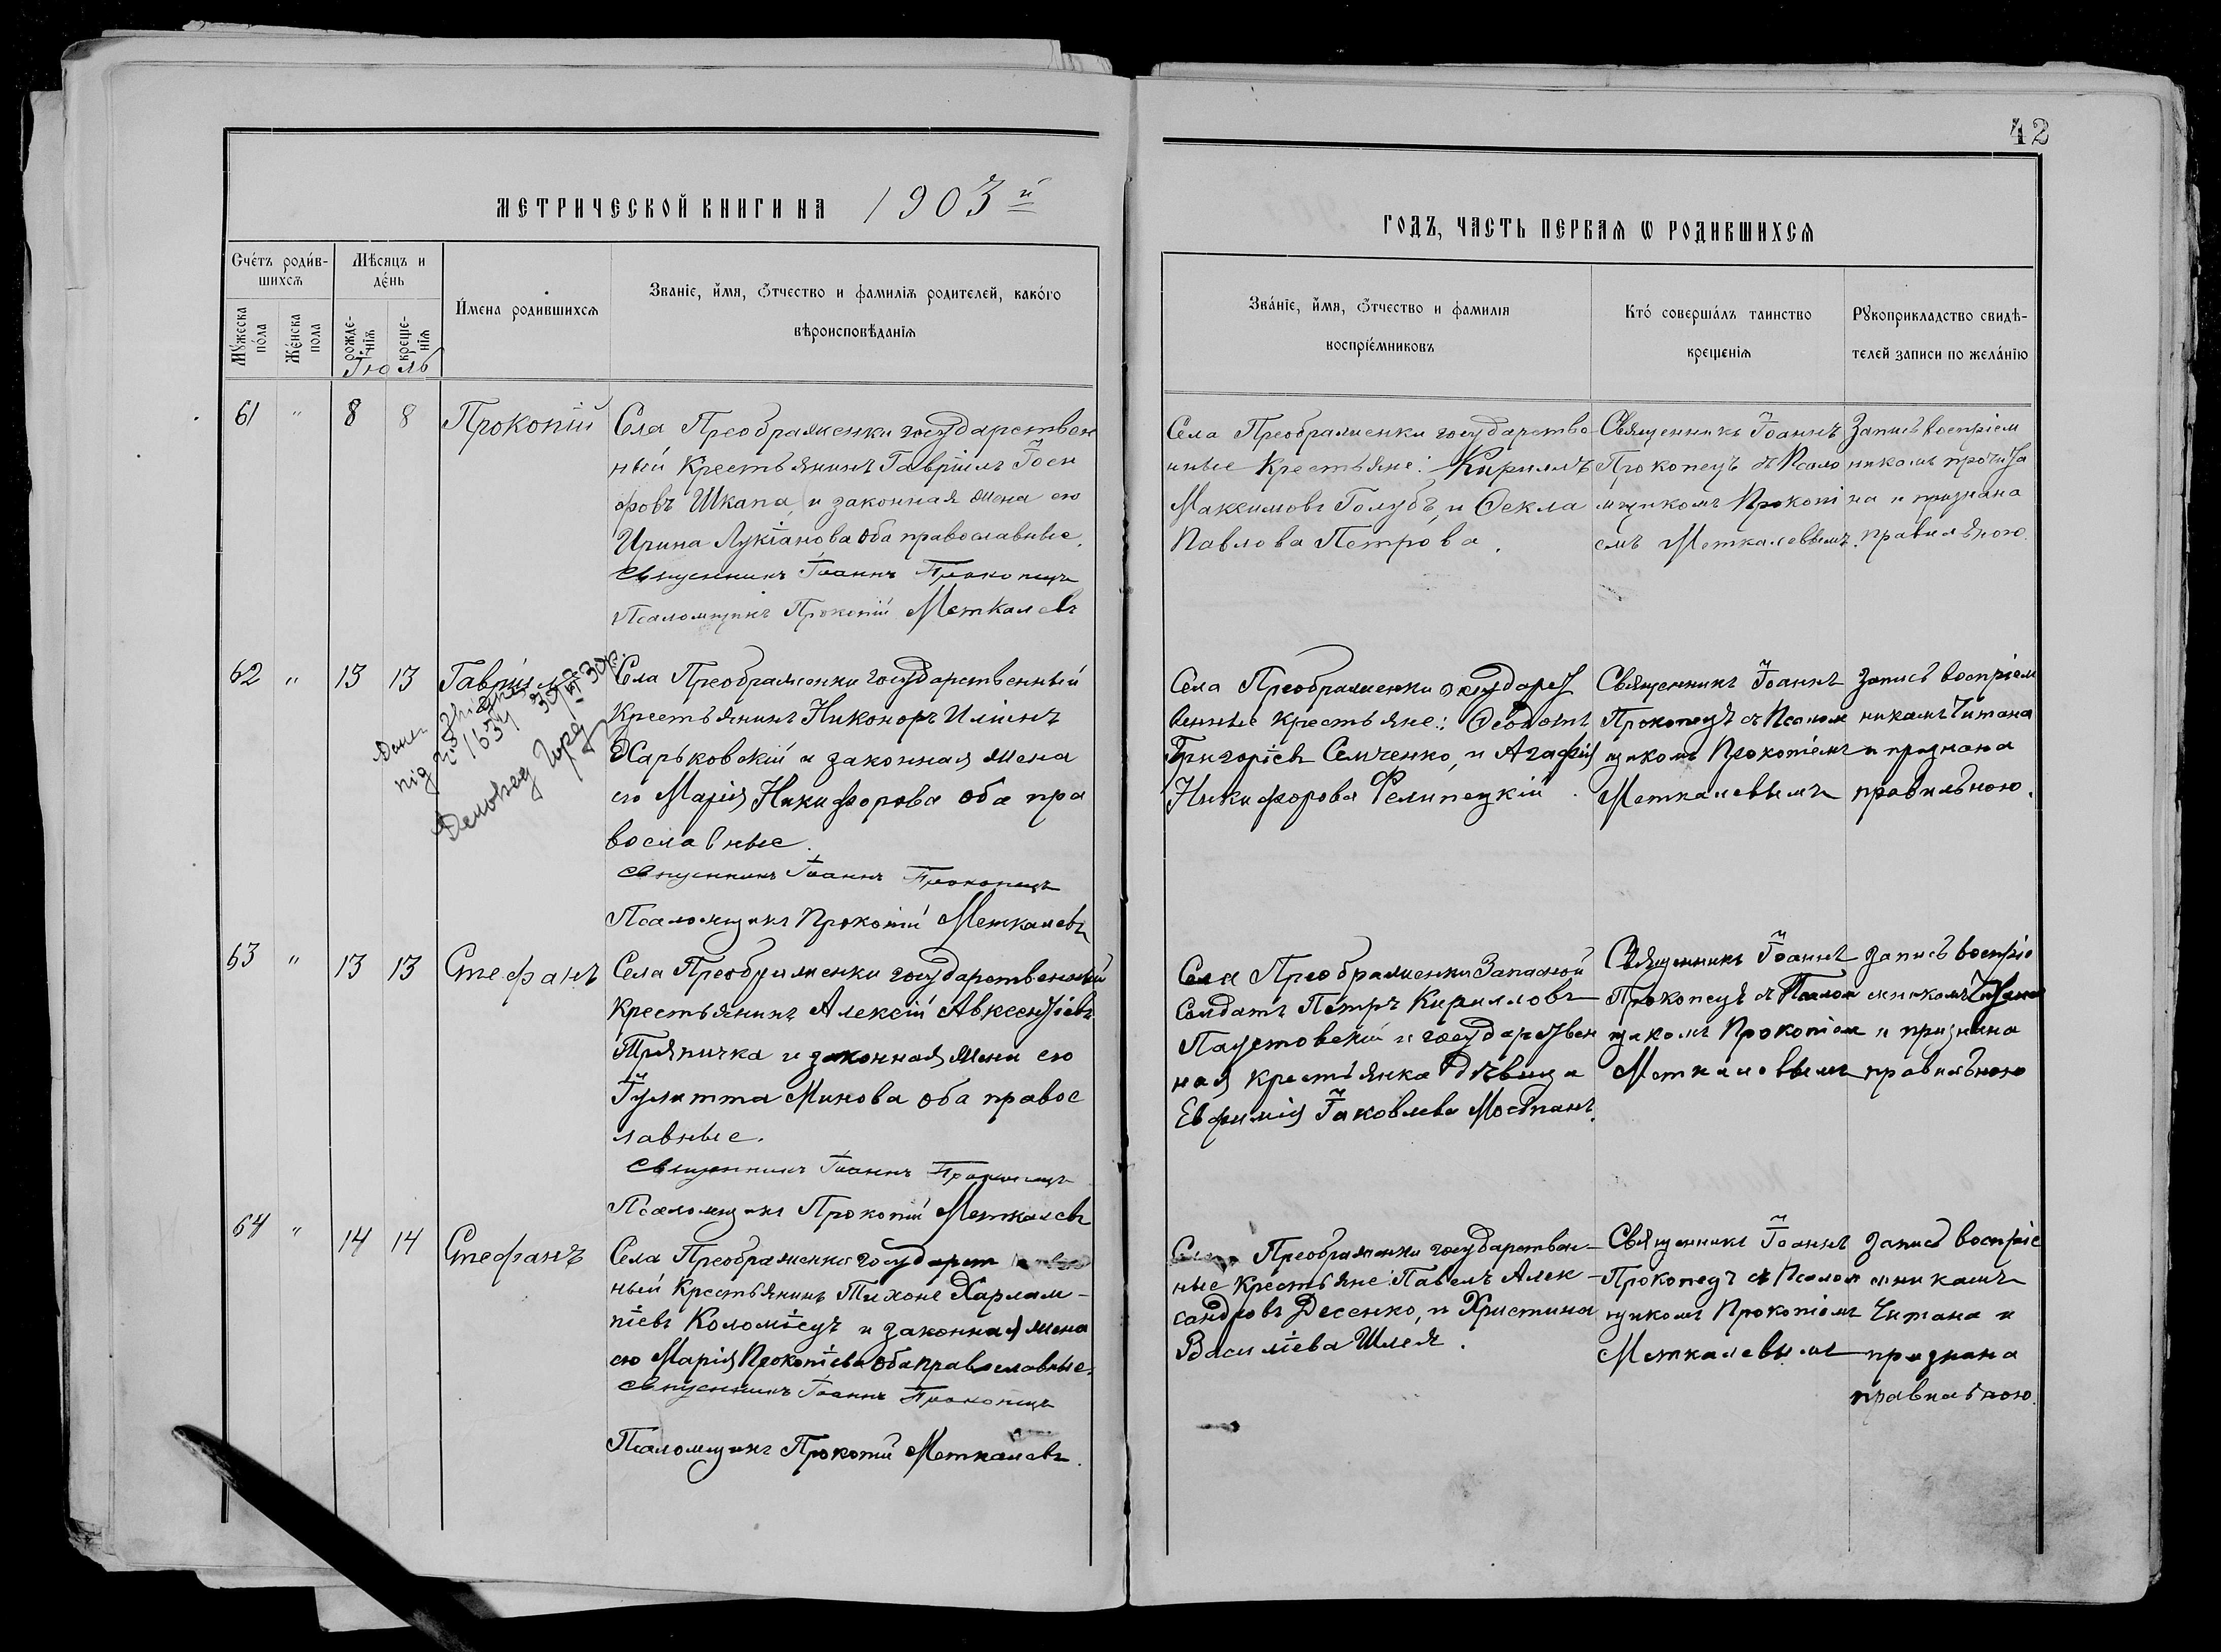 42
МЕТРИЧЕСКОЙ КНИГИ НА 1903й
ГОДЪ, ЧАСТЬ ПЕРВАЯ Ѡ РОДИВШИХСЯ
Счéтъ роди́в-
шихсѧ
Мѣсяцъ и
дéнь
Мꙋ́жеска
пóла
Жéнска
пола
рожде-
нїѧ
креще-
нїѧ
И́мена родившихсѧ
Званїе, и́мя, ѻ́тчество и фамилїѧ родителей, какóго
вѣроисповѣданїѧ
Звáнїе, и́мя, ѻ́тчество и фамилїѧ
воспрїéмниковъ
Ктó совершáлъ таинство
крещенїѧ
Рꙋкоприкладство свидѣ-
телей записи по желáнїю
Іюль
61 " 8 8 Прокопій
Села Преображенки государствен
ный Крестьянинъ Гавріилъ Іоси
фовъ Шкапа, и законная жена его
Ирина Лукіанова оба православные.
Священникъ Іоаннъ Прокопецъ
Псаломщикъ Прокопій Меткалевъ
Села Преображенки государстве
нные Крестьяне: Кириллъ
Максимовъ Голубъ, и Ѳекла
Павлова Петрова.
Священникъ Іоаннъ
Прокопецъ съ Псало
мщикомъ Прокопі
емъ Меткалевымъ.
Запись воспріем
никомъ прочита
на и признана
правильною.
62 " 13 13 Гавріилъ
Села Преображенки государственный
Крестьянинъ Никоноръ Иліинъ
Харьковскій и законная жена
его Марія Никифорова оба пра
вославные.
Священникъ Іоаннъ Прокопецъ
Псаломщикъ Прокопій Меткалевъ
під № 1634
Села Преображенки государст
венные крестьяне: Ѳеодотъ
Григоріевъ Семченко, и Агафія
Никифорова Фелипецкій.
Священникъ Іоаннъ
Прокопецъ съ Псалом
щикомъ Прокопіемъ
Меткалевымъ
Запись воспріем
никамъ читана
и признана
правильною.
63 " 13 13 Стефанъ
Села Преображенки государственный
Крестьянинъ Алексій Авксентіевъ
Тряпичка и законная жена его
Іулитта Минова оба правос
лавные.
Священникъ Іоаннъ Прокопецъ
Псаломщикъ Прокопій Меткалевъ
Села Преображенки Запасной
Солдатъ Петръ Кирилловъ
Паустовскій и государствен
ная крестьянка Дѣвица
Евфимія Іаковлева Мостпанъ.
Священникъ Іоаннъ
Прокопецъ съ Псалом
щикомъ Прокопіем
Меткалевымъ
Запись воспріе
мникомъ Читана
и признана
правильною
64 " 14 14 Стефанъ
Села Преображенки государствен
ный Крестьянинъ Тихонъ Харлам-
піевъ Коломіецъ и законная жена
его Марія Прокопіева оба православные.
Священникъ Іоаннъ Прокопецъ
Псаломщикъ Прокопій Меткалевъ.
Села Преображенки государствен-
ные Крестьяне: Павелъ Алек-
сандровъ Десенко, и Христина
Василіева Шлея.
Священникъ Іоаннъ
Прокопецъ съ Псалом
щикомъ Прокопіемъ
Меткалевымъ
Запись воспріе
мникамъ
Читана и
признана
правильною.